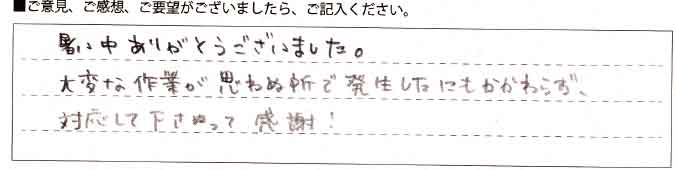 ■ご意見、ご感想、ご要望がございましたら、ご記入ください。
暑い中ありがとうございました。
大変な作業が思わぬ所で発生したにもかかわらず、
対応して下さって感謝！